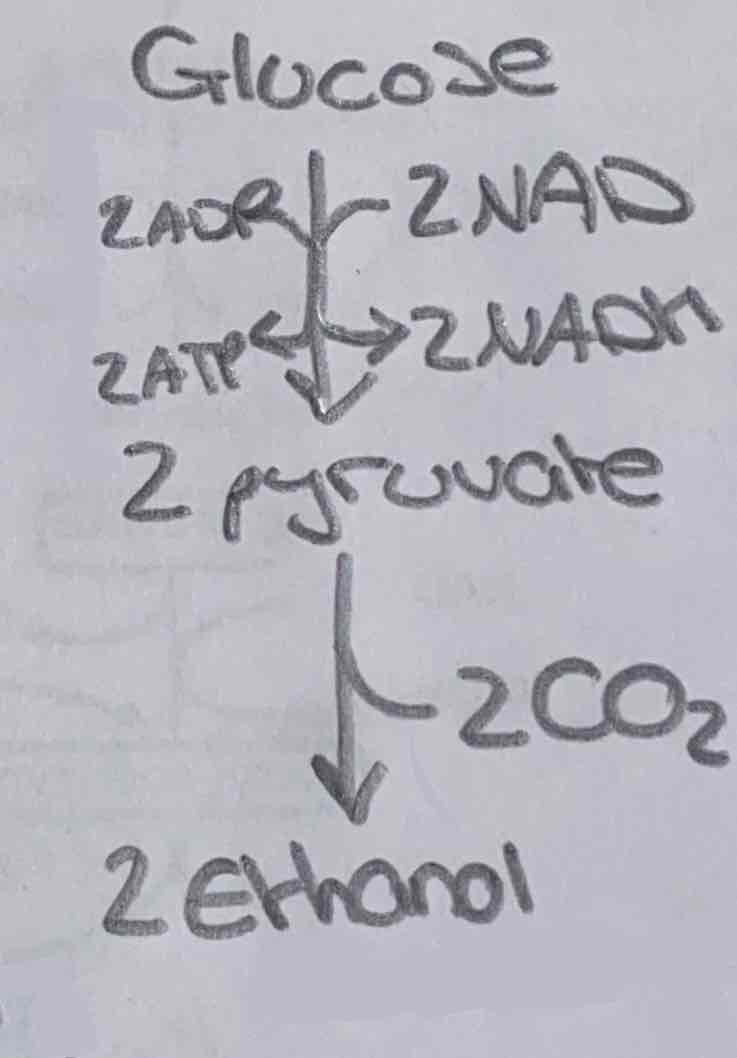 Glucose
2ADP 2NAD
2ATP 2NADH
2 pyruvate
2CO₂
2 Ethanol